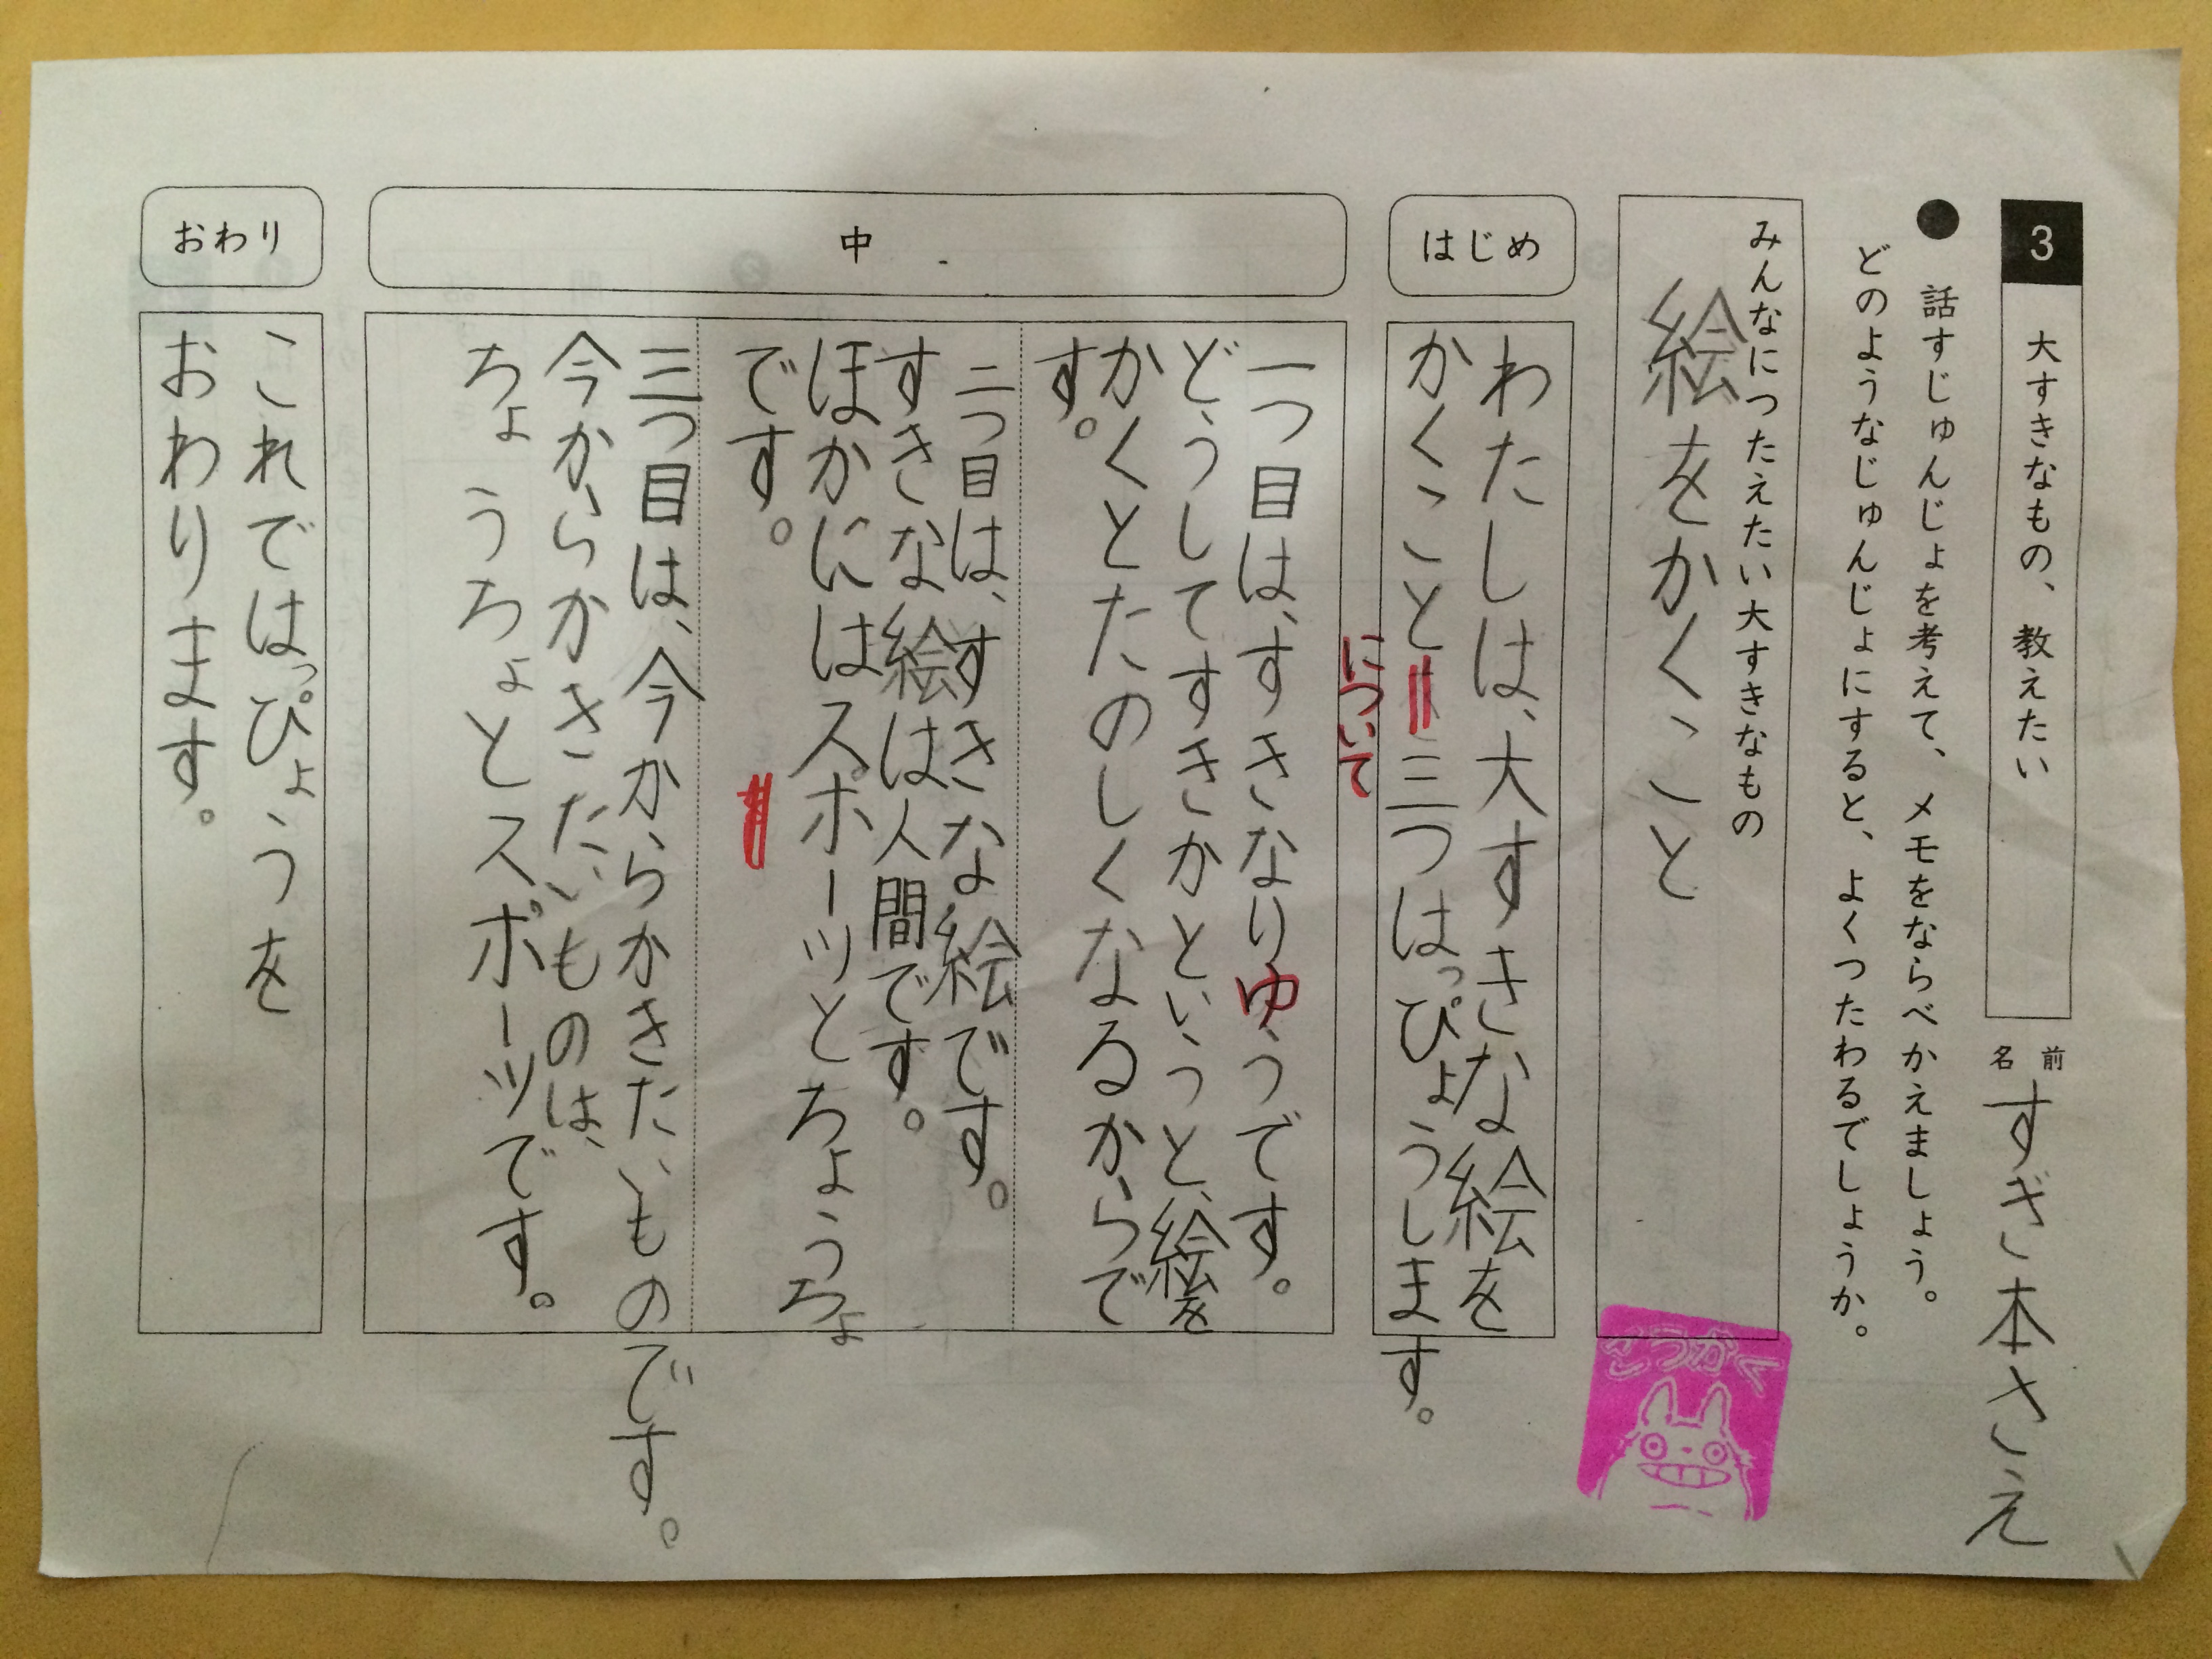 3
大すきなもの、教えたい
名前
すぎ本さえ
● 話すじゅんじょを考えて、メモをならべかえましょう。
どのようなじゅんじょにすると、よくつたわるでしょうか。
みんなにつたえたい大すきなもの
絵をかくこと
はじめ
わたしは、大すきな絵を
かくこと 三つはっぴょうします。
について
中
一つ目は、すきなりゆうです。
どうしてすきかというと、絵を
かくとたのしくなるからで
す。
二つ目は、すきな絵です。
すきな絵は人間です。
ほかにはスポーツとちょうちょ
です。
三つ目は、今からかきたいものです。
今からかきたいものは、
ちょうちょとスポーツです。
おわり
これではっぴょうを
おわります。
ごうかく